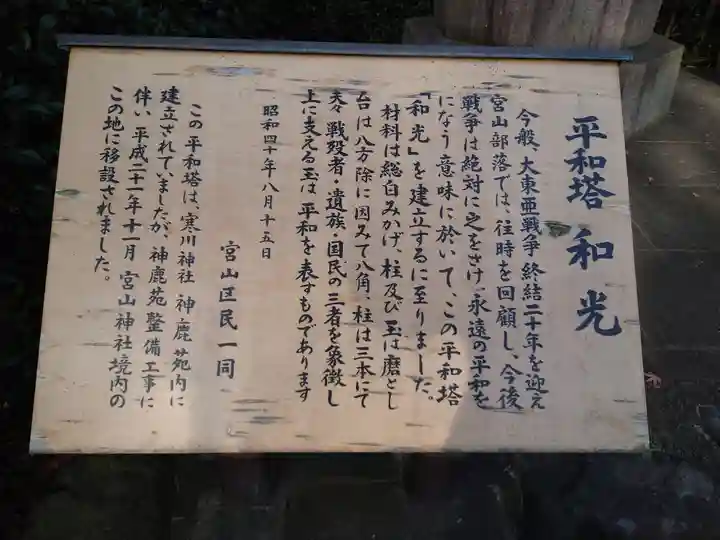 平和塔 和光
今般、大東亜戦争終結二十年を迎え
宮山部落では、往時を回顧し、今後
戦争は絶対に之をさけ、永遠の平和を
になう意味に於いて、この平和塔
「和光」を建立するに至りました。
材料は総白みかげ、柱及び玉は磨とし
台は八方除に因みて八角、柱は三本にて
夫々戦歿者・遺族・国民の三者を象徴し
上に支える玉は平和を表すものであります
昭和四十年八月十五日
宮山区民一同
この平和塔は、寒川神社神鹿苑内に
建立されていましたが、神鹿苑整備工事に
伴い、平成二十一年十一月宮山神社境内の
この地に移設されました。